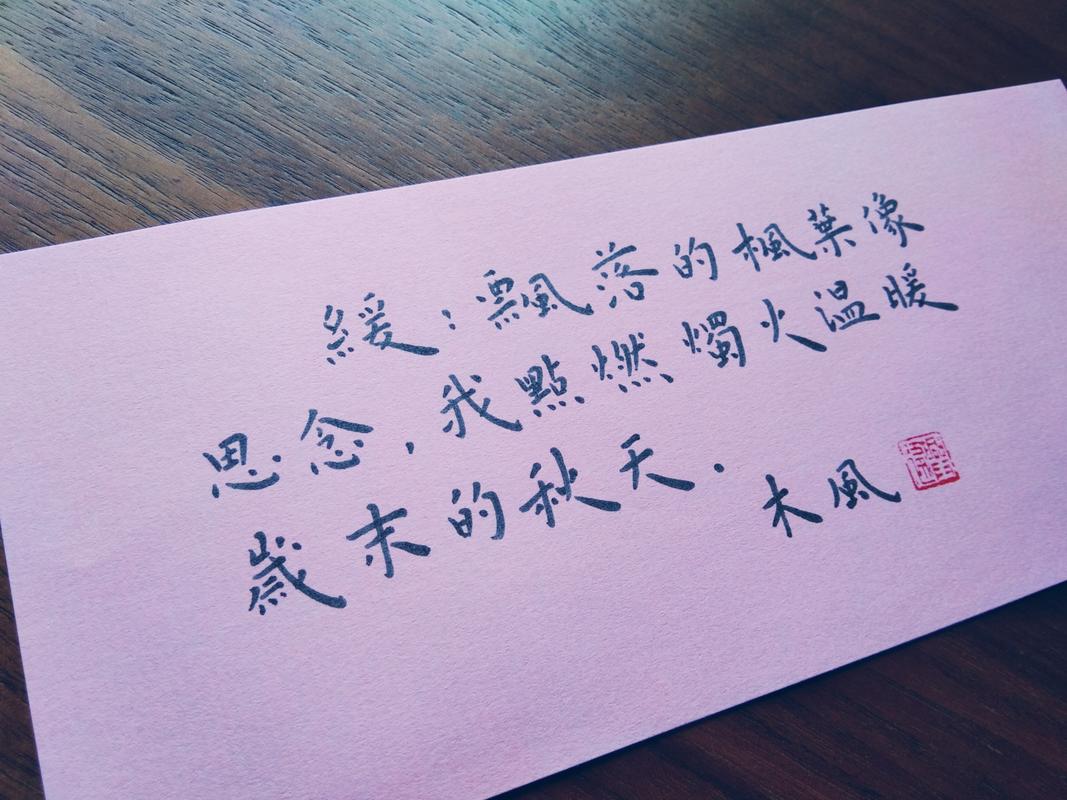 緩：飄落的楓葉像
思念，我點燃燭火温暖
歲末的秋天．
木風